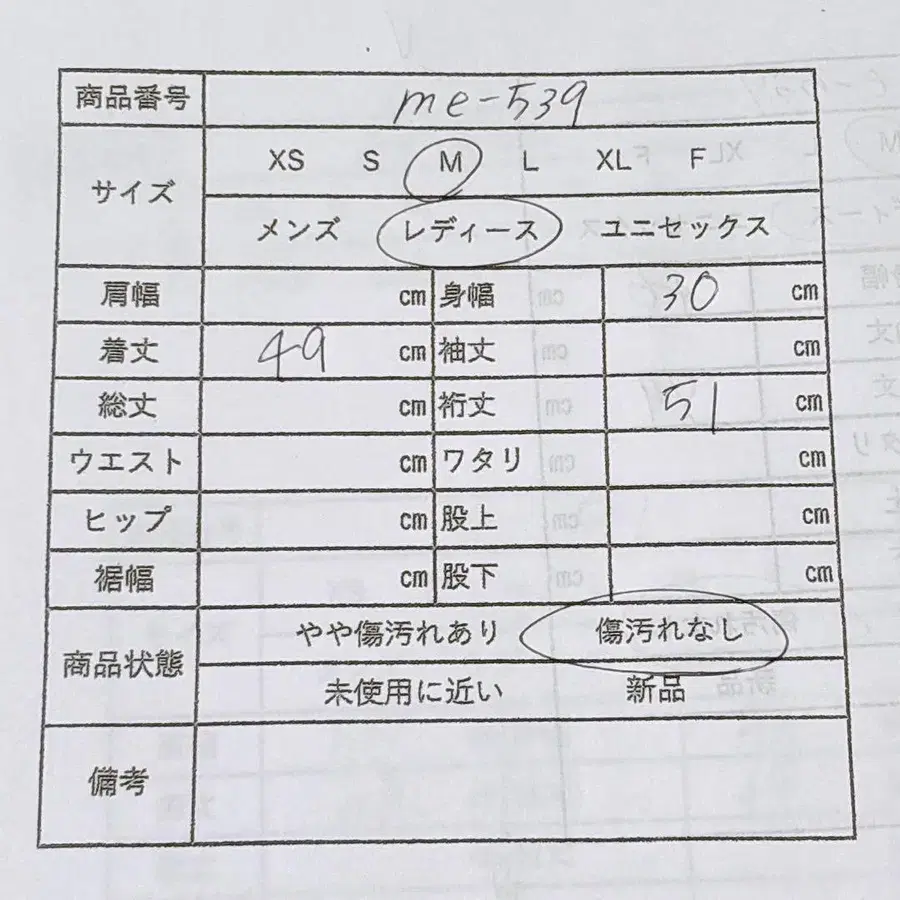 商品番号 me-539
サイズ XS S M L XL F
メンズ レディース ユニセックス
肩幅 cm 身幅 30 cm
着丈 49 cm 袖丈 cm
総丈 cm 裄丈 51 cm
ウエスト cm ワタリ cm
ヒップ cm 股上 cm
裾幅 cm 股下 cm
商品状態 やや傷汚れあり 傷汚れなし
未使用に近い 新品
備考